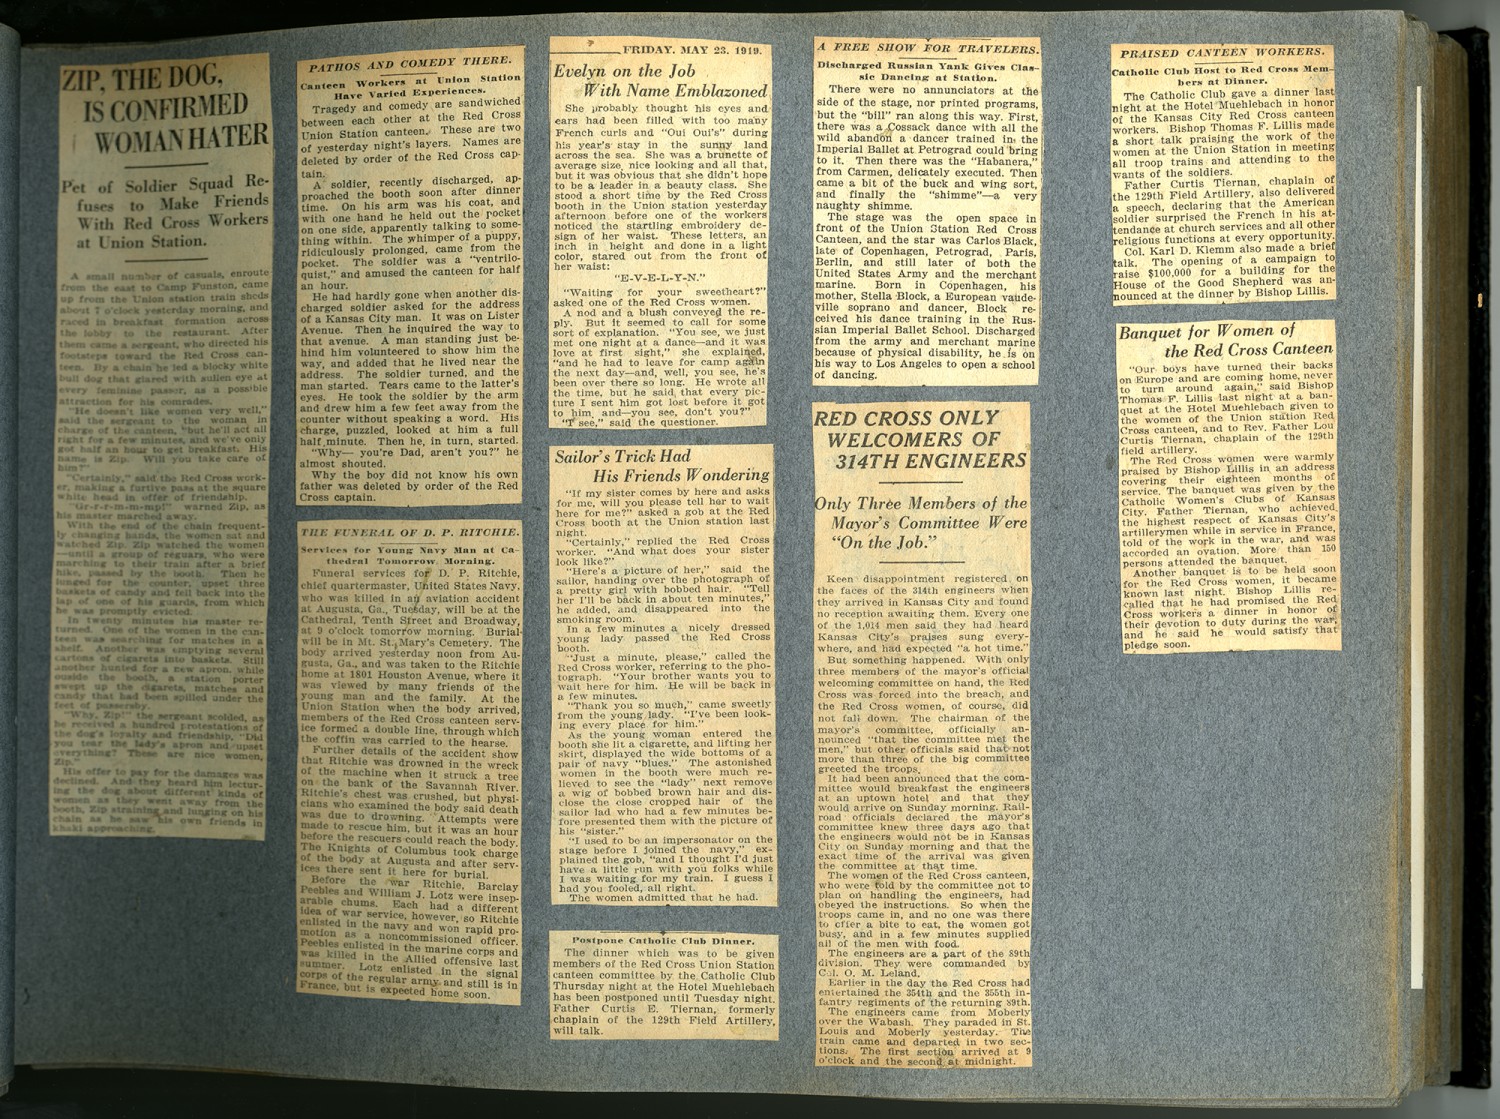 ZIP, THE DOG,
IS CONFIRMED
WOMAN HATER
Pet of Soldier Squad Re-
fuses to Make Friends
With Red Cross Workers
at Union Station.
A small number of casuals, enroute
from the east to Camp Funston, came
up from the Union station train sheds
about 7 o'clock yesterday morning, and
raced in breakfast formation across
the lobby to the restaurant. After
them came a sergeant, who directed his
footsteps toward the Red Cross can-
teen. By a chain he led a blocky white
bull dog that glared with sullen eye at
every feminine passer, as a possible
attraction for his comrades.
"He doesn't like women very well,"
said the sergeant to the woman in
charge of the canteen, "but he'll act all
right for a few minutes, and we've only
got half an hour to get breakfast. His
name is Zip. Will you take care of
him?"
"Certainly," said the Red Cross work-
er, making a furtive pass at the square
white head in offer of friendship.
"Gr-r-r-m-m-mp!" warned Zip, as
his master marched away.
With the end of the chain frequent-
ly changing hands, the women sat and
watched Zip. Zip watched the women
—until a group of regulars, who were
marching to their train after a brief
hike, passed by the booth. Then he
lunged for the counter, upset three
baskets of candy and fell back into the
lap of one of his guards, from which
he was promptly evicted.
In twenty minutes his master re-
turned. One of the women in the can-
teen was searching for matches in a
shelf. Another was emptying several
cartons of cigarets into baskets. Still
another hunted for a new apron, while
outside the booth, a station porter
swept up the cigarets, matches and
candy that had been spilled under the
feet of passersby.
"Why, Zip!" the sergeant scolded, as
he received a hundred protestations of
the dog's loyalty and friendship, "Did
you tear the lady's apron and upset
everything? These are nice women,
Zip."
His offer to pay for the damages was
declined. And they heard him lectur-
ing the dog about different kinds of
women as they went away from the
booth, Zip straining and lunging on his
chain as he saw his own friends in
khaki approaching.
PATHOS AND COMEDY THERE.
Canteen Workers at Union Station
Have Varied Experiences.
Tragedy and comedy are sandwiched
between each other at the Red Cross
Union Station canteen. These are two
of yesterday night's layers. Names are
deleted by order of the Red Cross cap-
tain.
A soldier, recently discharged, ap-
proached the booth soon after dinner
time. On his arm was his coat, and
with one hand he held out the pocket
on one side, apparently talking to some-
thing within. The whimper of a puppy,
ridiculously prolonged, came from the
pocket. The soldier was a "ventrilo-
quist," and amused the canteen for half
an hour.
He had hardly gone when another dis-
charged soldier asked for the address
of a Kansas City man. It was on Lister
Avenue. Then he inquired the way to
that avenue. A man standing just be-
hind him volunteered to show him the
way, and added that he lived near the
address. The soldier turned, and the
man started. Tears came to the latter's
eyes. He took the soldier by the arm
and drew him a few feet away from the
counter without speaking a word. His
charge, puzzled, looked at him a full
half minute. Then he, in turn, started.
"Why— you're Dad, aren't you?" he
almost shouted.
Why the boy did not know his own
father was deleted by order of the Red
Cross captain.
THE FUNERAL OF D. P. RITCHIE.
Services for Young Navy Man at Ca-
thedral Tomorrow Morning.
Funeral services for D. P. Ritchie,
chief quartermaster, United States Navy,
who was killed in an aviation accident
at Augusta, Ga., Tuesday, will be at the
Cathedral, Tenth Street and Broadway,
at 9 o'clock tomorrow morning. Burial
will be in Mt. St. Mary's Cemetery. The
body arrived yesterday noon from Au-
gusta, Ga., and was taken to the Ritchie
home at 1801 Houston Avenue, where it
was viewed by many friends of the
young man and the family. At the
Union Station when the body arrived,
members of the Red Cross canteen serv-
ice formed a double line, through which
the coffin was carried to the hearse.
Further details of the accident show
that Ritchie was drowned in the wreck
of the machine when it struck a tree
on the bank of the Savannah River.
Ritchie's chest was crushed, but physi-
cians who examined the body said death
was due to drowning. Attempts were
made to rescue him, but it was an hour
before the rescuers could reach the body.
The Knights of Columbus took charge
of the body at Augusta and after serv-
ices there sent it here for burial.
Before the war Ritchie, Barclay
Peebles and William J. Lotz were insep-
arable chums. Each had a different
idea of war service, however, so Ritchie
enlisted in the navy and won rapid pro-
motion as a noncommissioned officer.
Peebles enlisted in the marine corps and
was killed in the Allied offensive last
summer. Lotz enlisted in the signal
corps of the regular army and still is in
France, but is expected home soon.
FRIDAY, MAY 23, 1919.
Evelyn on the Job
With Name Emblazoned
She probably thought his eyes and
ears had been filled with too many
French curls and "Oui Oui's" during
his year's stay in the sunny land
across the sea. She was a brunette of
average size, nice looking and all that,
but it was obvious that she didn't hope
to be a leader in a beauty class. She
stood a short time by the Red Cross
booth in the Union station yesterday
afternoon before one of the workers
noticed the startling embroidery de-
sign of her waist. These letters, an
inch in height and done in a light
color, stared out from the front of
her waist:
"E-V-E-L-Y-N."
"Waiting for your sweetheart?"
asked one of the Red Cross women.
A nod and a blush conveyed the re-
ply. But it seemed to call for some
sort of explanation. "You see, we just
met one night at a dance—and it was
love at first sight," she explained,
"and he had to leave for camp again
the next day—and, well, you see, he's
been over there so long. He wrote all
the time, but he said, that every pic-
ture I sent him got lost before it got
to him, and—you see, don't you?"
"I see," said the questioner.
Sailor's Trick Had
His Friends Wondering
"If my sister comes by here and asks
for me, will you please tell her to wait
here for me?" asked a gob at the Red
Cross booth at the Union station last
night.
"Certainly," replied the Red Cross
worker. "And what does your sister
look like?"
"Here's a picture of her," said the
sailor, handing over the photograph of
a pretty girl with bobbed hair. "Tell
her I'll be back in about ten minutes,"
he added, and disappeared into the
smoking room.
In a few minutes a nicely dressed
young lady passed the Red Cross
booth.
"Just a minute, please," called the
Red Cross worker, referring to the pho-
tograph. "Your brother wants you to
wait here for him. He will be back in
a few minutes."
"Thank you so much," came sweetly
from the young lady. "I've been look-
ing every place for him."
As the young woman entered the
booth she lit a cigarette, and lifting her
skirt, displayed the wide bottoms of a
pair of navy "blues." The astonished
women in the booth were much re-
lieved to see the "lady" next remove
a wig of bobbed brown hair and dis-
close the close cropped hair of the
sailor lad who had a few minutes be-
fore presented them with the picture of
his "sister."
"I used to be an impersonator on the
stage before I joined the navy," ex-
plained the gob, "and I thought I'd just
have a little run with you folks while
I was waiting for my train. I guess I
had you fooled, all right.
The women admitted that he had.
Postpone Catholic Club Dinner.
The dinner which was to be given
members of the Red Cross Union Station
canteen committee by the Catholic Club
Thursday night at the Hotel Muehlebach
has been postponed until Tuesday night.
Father Curtis E. Tiernan, formerly
chaplain of the 129th Field Artillery,
will talk.
A FREE SHOW FOR TRAVELERS.
Discharged Russian Yank Gives Clas-
sic Dancing at Station.
There were no annunciators at the
side of the stage, nor printed programs,
but the "bill" ran along this way. First,
there was a Cossack dance with all the
wild abandon a dancer trained in the
Imperial Ballet at Petrograd could bring
to it. Then there was the "Habanera,"
from Carmen, delicately executed. Then
came a bit of the buck and wing sort,
and finally the "shimme"—a very
naughty shimme.
The stage was the open space in
front of the Union Station Red Cross
Canteen, and the star was Carlos Black,
late of Copenhagen, Petrograd, Paris,
Berlin, and still later of both the
United States Army and the merchant
marine. Born in Copenhagen, his
mother, Stella Block, a European vaude-
ville soprano and dancer, Block re-
ceived his dance training in the Rus-
sian Imperial Ballet School. Discharged
from the army and merchant marine
because of physical disability, he is on
his way to Los Angeles to open a school
of dancing.
RED CROSS ONLY
WELCOMERS OF
314TH ENGINEERS
Only Three Members of the
Mayor's Committee Were
"On the Job."
Keen disappointment registered on
the faces of the 314th engineers when
they arrived in Kansas City and found
no reception awaiting them. Every one
of the 1,014 men said they had heard
Kansas City's praises sung every-
where, and had expected "a hot time."
But something happened. With only
three members of the mayor's official
welcoming committee on hand, the Red
Cross was forced into the breach, and
the Red Cross women, of course, did
not fall down. The chairman of the
mayor's committee, officially an-
nounced "that the committee met the
men," but other officials said that not
more than three of the big committee
greeted the troops.
It had been announced that the com-
mittee would breakfast the engineers
at an uptown hotel and that they
would arrive on Sunday morning. Rail-
road officials declared the mayor's
committee knew three days ago that
the engineers would not be in Kansas
City on Sunday morning and that the
exact time of the arrival was given
the committee at that time.
The women of the Red Cross canteen,
who were told by the committee not to
plan on handling the engineers, had
obeyed the instructions. So when the
troops came in, and no one was there
to offer a bite to eat, the women got
busy, and in a few minutes supplied
all of the men with food.
The engineers are a part of the 89th
division. They were commanded by
Col. O. M. Leland.
Earlier in the day the Red Cross had
entertained the 354th and the 355th in-
fantry regiments of the returning 89th.
The engineers came from Moberly
over the Wabash. They paraded in St.
Louis and Moberly yesterday. The
train came and departed in two sec-
tions. The first section arrived at 9
o'clock and the second at midnight.
PRAISED CANTEEN WORKERS.
Catholic Club Host to Red Cross Mem-
bers at Dinner.
The Catholic Club gave a dinner last
night at the Hotel Muehlebach in honor
of the Kansas City Red Cross canteen
workers. Bishop Thomas F. Lillis made
a short talk praising the work of the
women at the Union Station in meeting
all troop trains and attending to the
wants of the soldiers.
Father Curtis Tiernan, chaplain of
the 129th Field Artillery, also delivered
a speech, declaring that the American
soldier surprised the French in his at-
tendance at church services and all other
religious functions at every opportunity.
Col. Karl D. Klemm also made a brief
talk. The opening of a campaign to
raise $100,000 for a building for the
House of the Good Shepherd was an-
nounced at the dinner by Bishop Lillis.
Banquet for Women of
the Red Cross Canteen
"Our boys have turned their backs
on Europe and are coming home, never
to turn around again," said Bishop
Thomas F. Lillis last night at a ban-
quet at the Hotel Muehlebach given to
the women of the Union station Red
Cross canteen, and to Rev. Father Lou
Curtis Tiernan, chaplain of the 129th
field artillery.
The Red Cross women were warmly
praised by Bishop Lillis in an address
covering their eighteen months of
service. The banquet was given by the
Catholic Women's Clubs of Kansas
City. Father Tiernan, who achieved
the highest respect of Kansas City's
artillerymen while in service in France,
told of the work in the war, and was
accorded an ovation. More than 150
persons attended the banquet.
Another banquet is to be held soon
for the Red Cross women, it became
known last night. Bishop Lillis re-
called that he had promised the Red
Cross workers a dinner in honor of
their devotion to duty during the war,
and he said he would satisfy that
pledge soon.